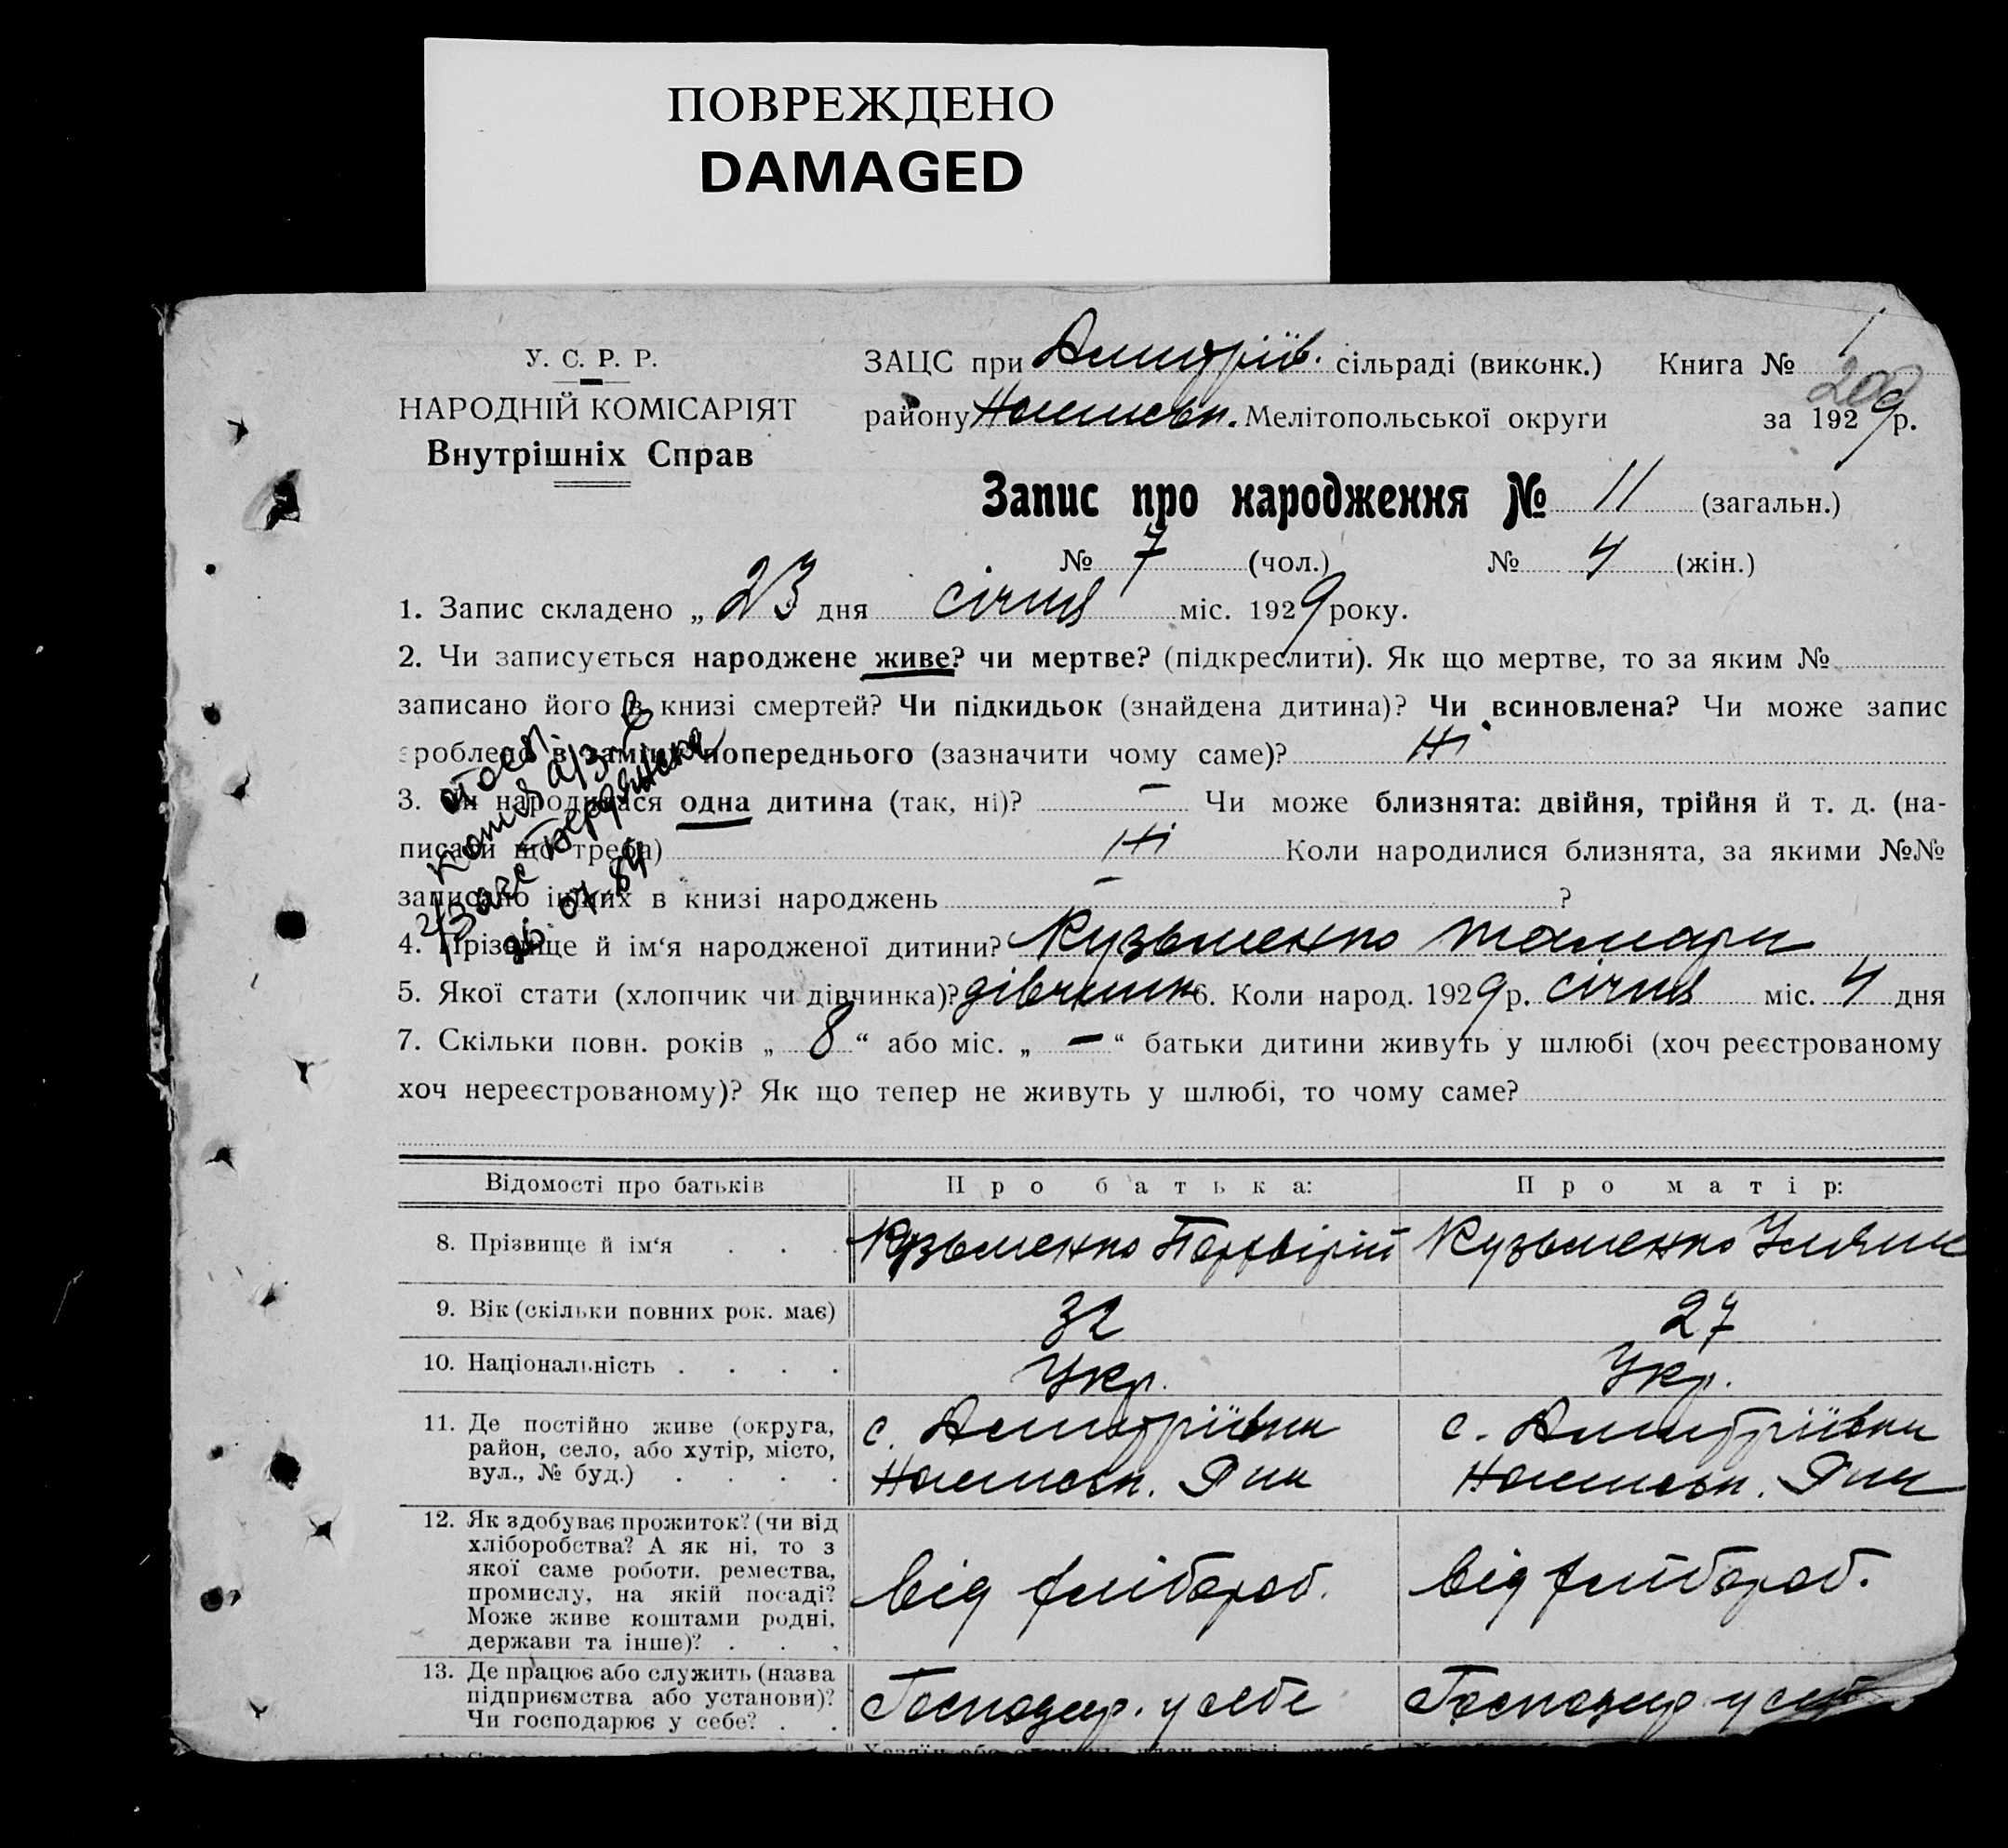 ПОВРЕЖДЕНО
DAMAGED
У. С. Р. Р.
НАРОДНІЙ КОМІСАРІЯТ
Внутрішніх Справ
ЗАЦС при Дмитріїв. сільраді (виконк.) Книга № 1
200
району Мелітопольської округи за 1929 р.
Запис про народження № 11 (загальн.)
№ 7 (чол.) № 4 (жін.)
1. Запис складено „ 23 дня січня міс. 1929 року.
2. Чи записується народжене живе? чи мертве? (підкреслити). Як що мертве, то за яким №
записано його в книзі смертей? Чи підкидьок (знайдена дитина)? Чи всиновлена? Чи може запис
зроблено в заміну попереднього (зазначити чому саме)? Ні
3. Чи народилася одна дитина (так, ні)? — Чи може близнята: двійня, трійня й т. д. (на-
писати що треба) Ні Коли народилися близнята, за якими №№
записано інших в книзі народжень — ?
копия а/з
Бердянска
07.84
4. Прізвище й ім‘я народженої дитини? Кузьменко Тамара
5. Якої стати (хлопчик чи дівчинка)? дівчинка 6. Коли народ. 1929 р. січня міс. 4 дня
7. Скільки повн. років „ 8 “ або міс. „ — “ батьки дитини живуть у шлюбі (хоч реєстрованому
хоч нереєстрованому)? Як що тепер не живуть у шлюбі, то чому саме?
Відомості про батьків Про батька: Про матір:
8. Прізвище й ім‘я . . . Кузьменко Порфірій Кузьменко Уляна
9. Вік (скільки повних рок. має) 32 27
10. Національність . . . . Укр. Укр.
11. Де постійно живе (округа, с. Дмитріївка с. Дмитріївка
район, село, або хутір, місто,
вул., № буд.) . . . . Р-на Р-на
12. Як здобуває прожиток? (чи від
хліборобства? А як ні, то з
якої саме роботи, ремества,
промислу, на якій посаді? від хлібороб. від хлібороб.
Може живе коштами родні,
держави та інше)? . . .
13. Де працює або служить (назва
підприємства або установи)? Господар. у себе Господар. у себе
Чи господарює у себе? . .